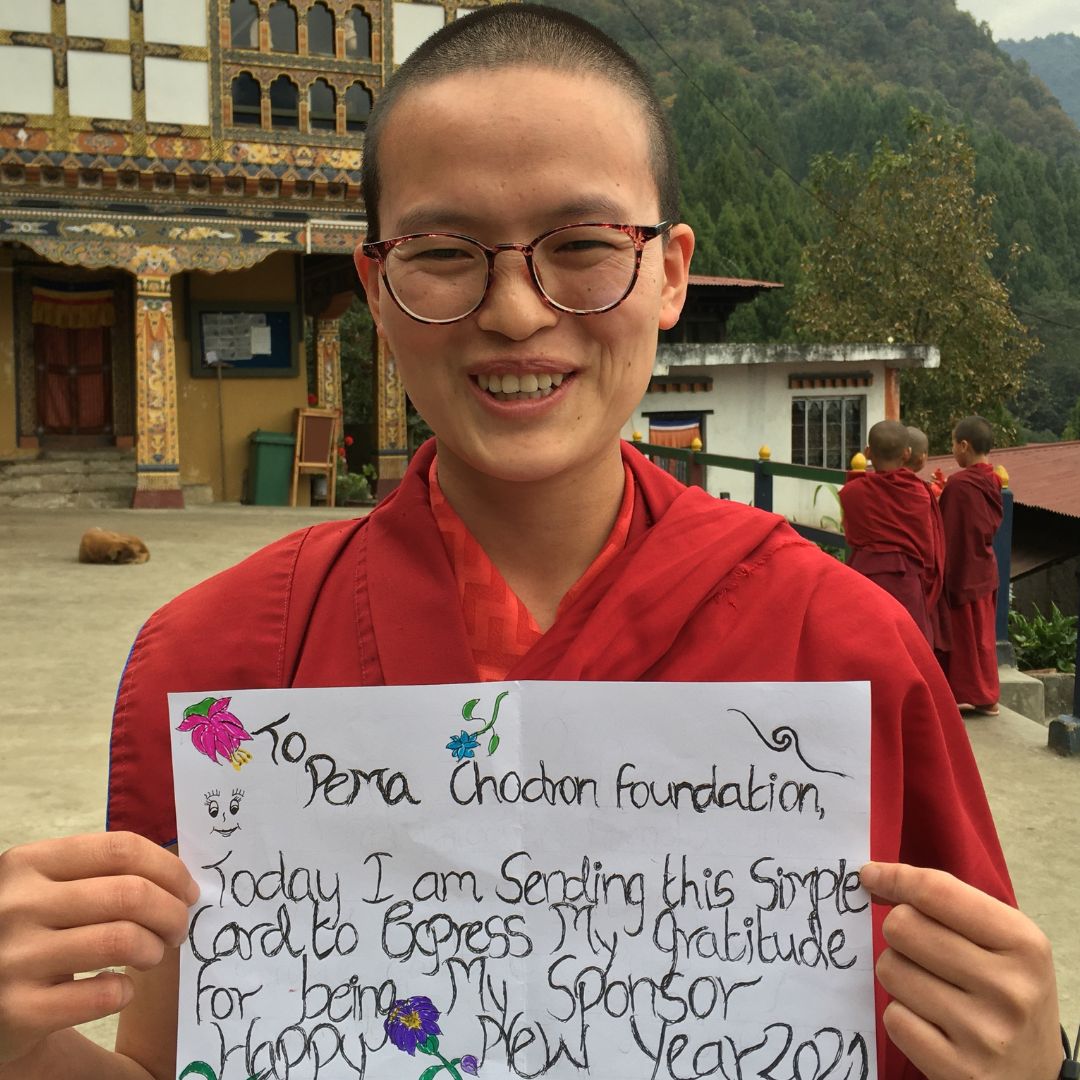 To
Pema Chodron Foundation,
Today I am Sending this Simple
Card to Express My Gratitude
For being My Sponsor
Happy New Year 2021